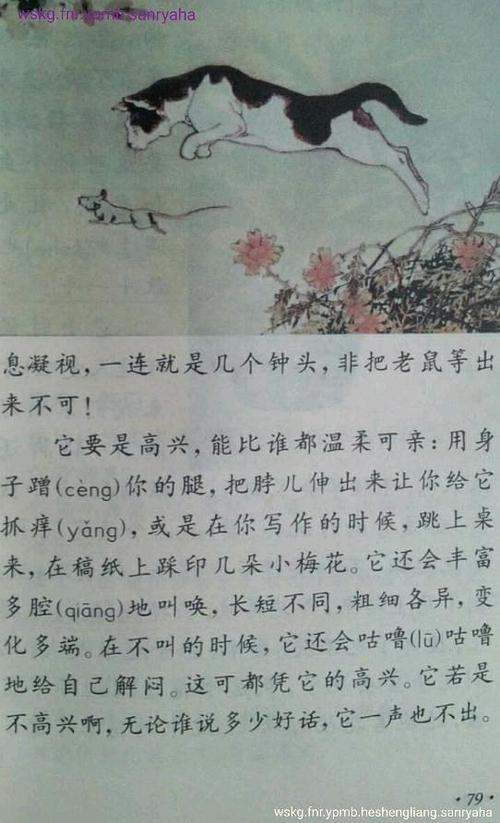 wskg.fnr.ypmb.sanryaha
息凝视，一连就是几个钟头，非把老鼠等出
来不可！
它要是高兴，能比谁都温柔可亲：用身
子蹭(cèng)你的腿，把脖儿伸出来让你给它
抓痒(yǎng)，或是在你写作的时候，跳上桌
来，在稿纸上踩印几朵小梅花。它还会丰富
多腔(qiāng)地叫唤，长短不同，粗细各异，变
化多端。在不叫的时候，它还会咕噜(lū)咕噜
地给自己解闷。这可都凭它的高兴。它若是
不高兴啊，无论谁说多少好话，它一声也不出。
·79·
wskg.fnr.ypmb.heshengliang.sanryaha